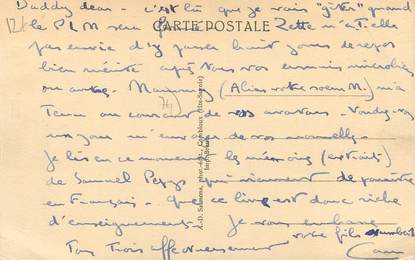 Daddy dear - c'est là que je vais "gîter" quand
CARTE POSTALE
le PLM sera Zette n'a-t-elle
pas envie d'y passer huit jours de repos
bien mérité après tous vos ennuis
ou autres. Mammy (Alias votre soeur M.) m'a
74
tenu au courant de vos avatars. Voulez-vous
un jour m'envoyer de vos nouvelles.
Je lis en ce moment les mémoires (extraits)
de Samuel Pepys qui viennent de paraître
en Français - que ce livre est donc riche
d'enseignements. Je vous embrasse
Tous Trois affectueusement votre fils
A.-D. Salomma, phot.-édit., Combloux (Hte-Savoie)